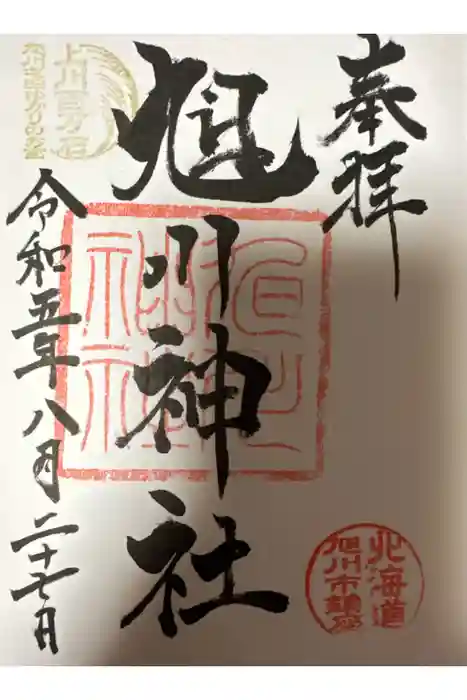 奉拝
旭川神社
令和五年八月二十七日
旭川神社
北海道
旭川市鎮座
上川百万石